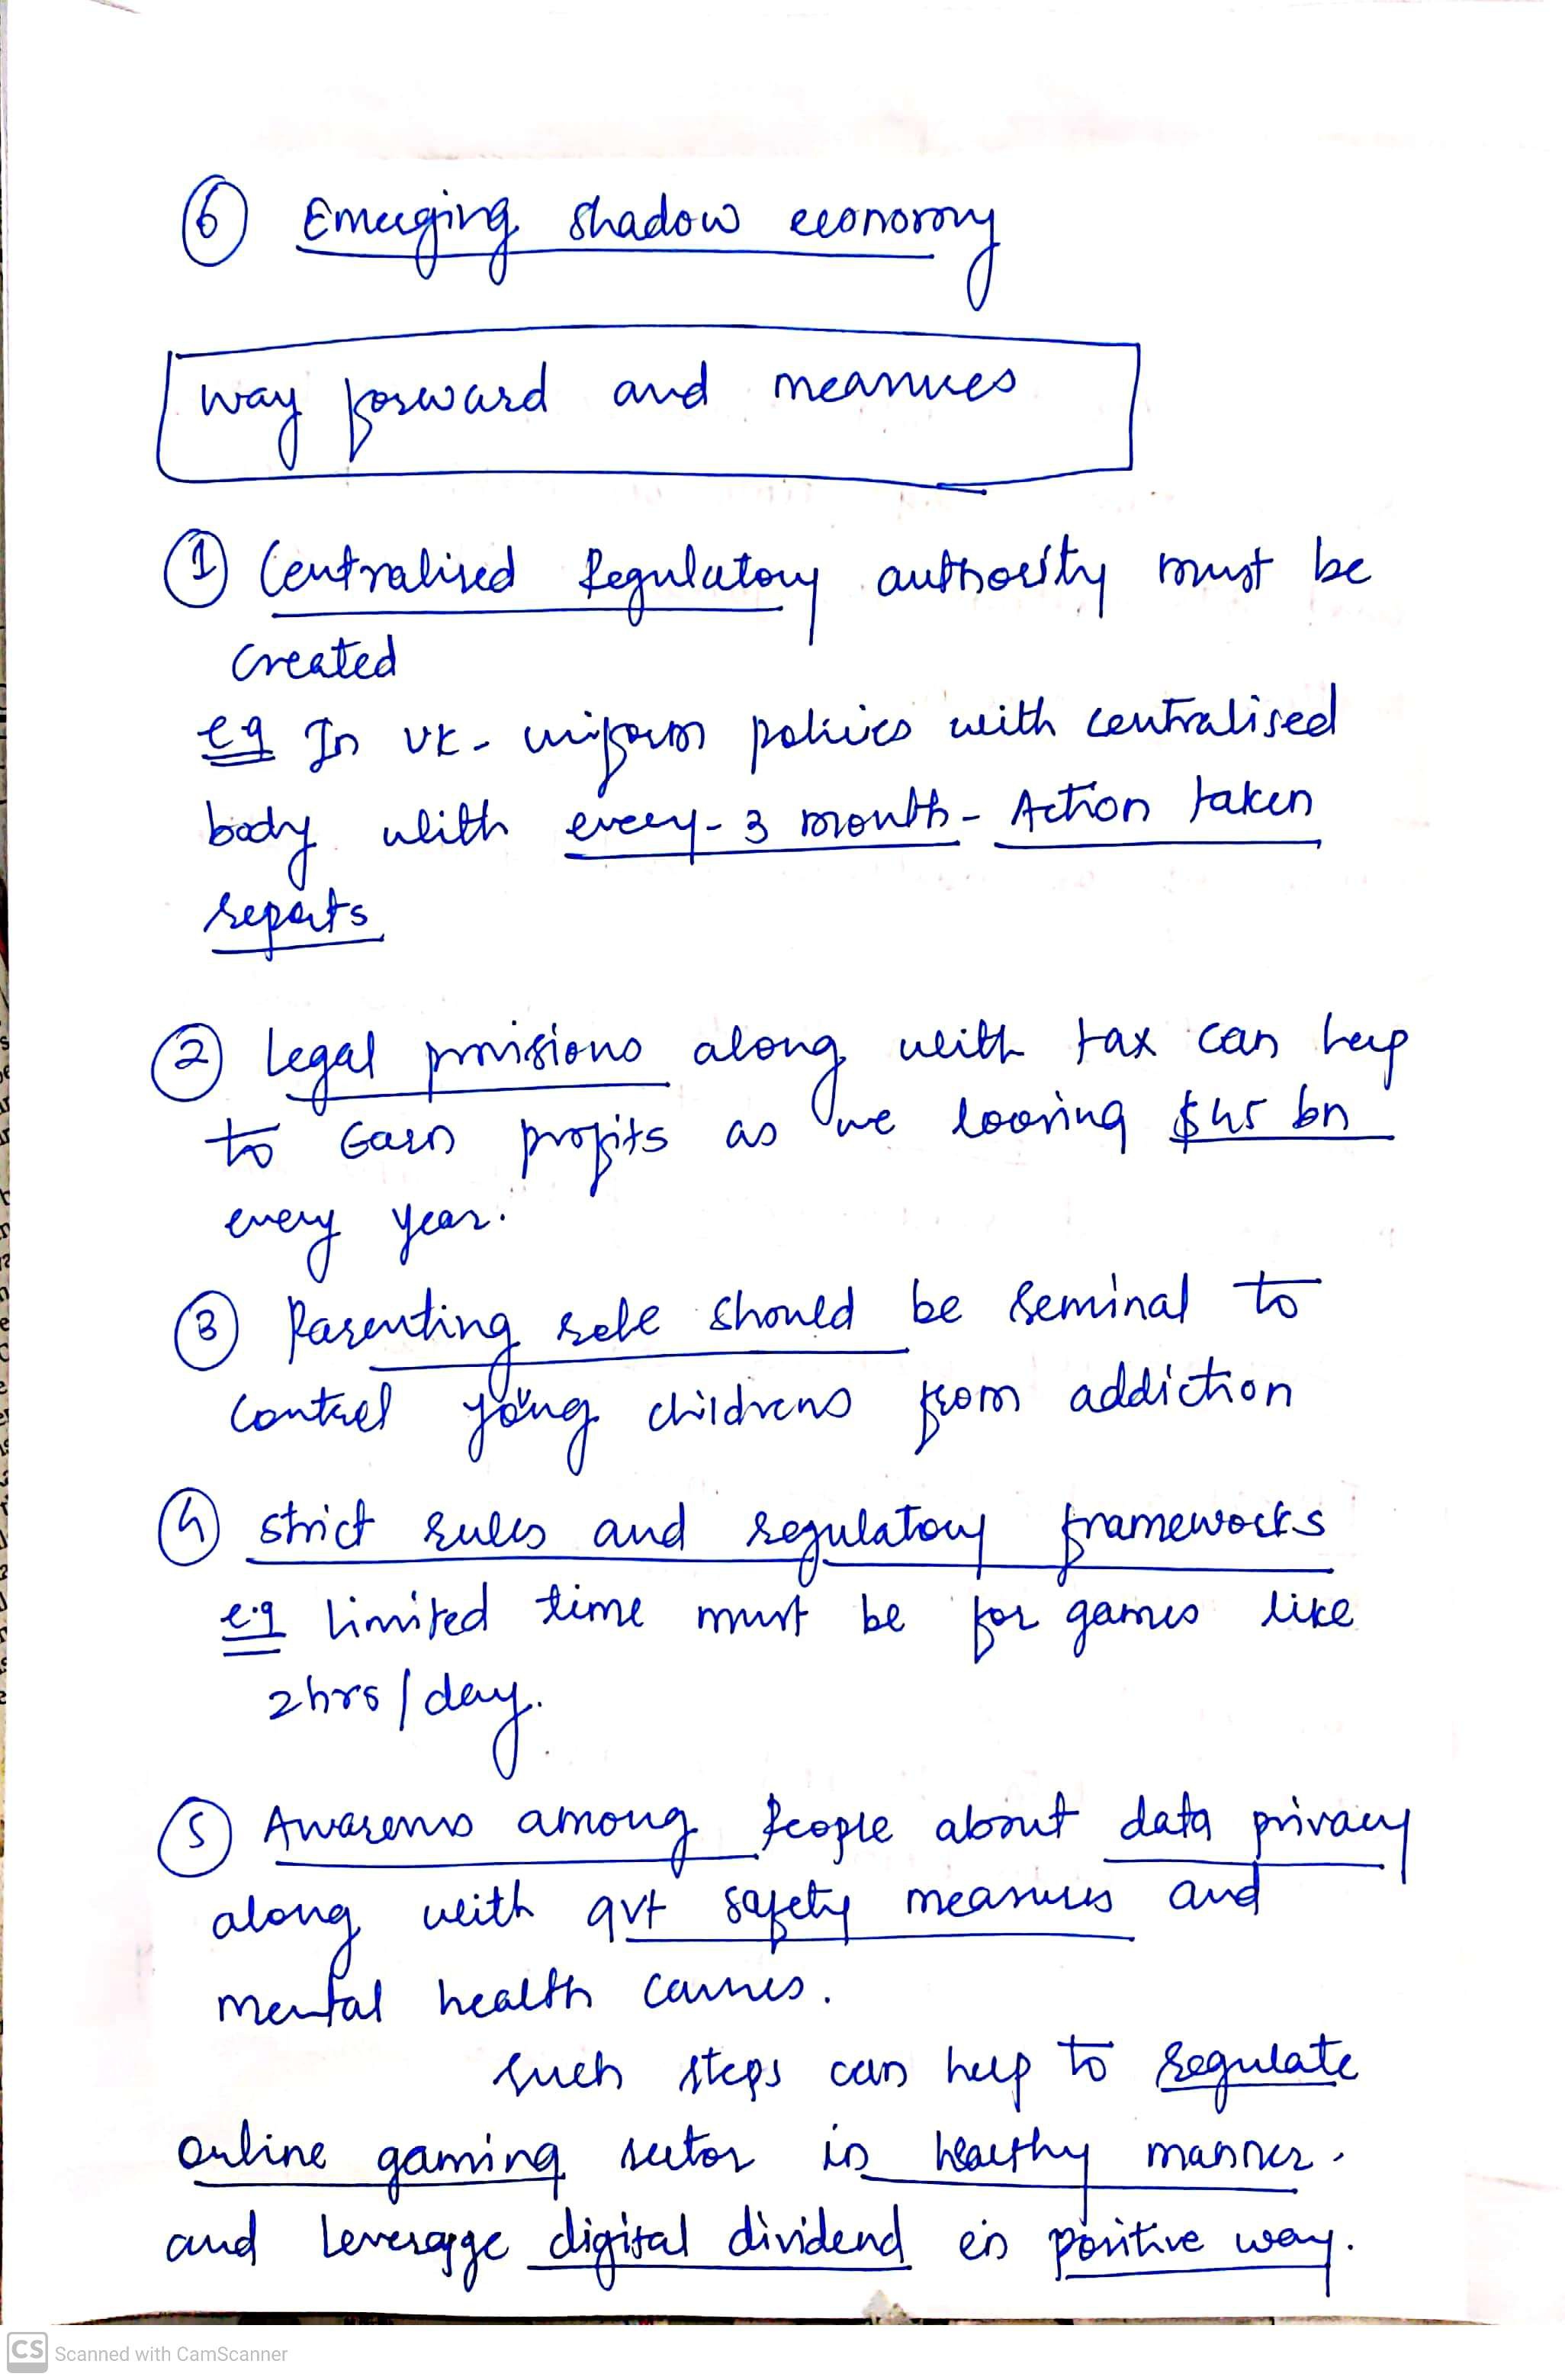 6 Emerging shadow economy
way forward and measures
1 Centralised Regulatory authority must be
created
eg In UK - uniform policies with centralised
body with every - 3 month - Action taken
reports
2 Legal provisions along with tax can help
to Earn profits as we loosing $45 bn
every year.
3 Parenting role should be seminal to
control young childrens from addiction
4 strict rules and regulatory frameworks
e.g limited time must be for games like
2hrs/day.
5 Awareness among People about data privacy
along with gvt safety measures and
mental health causes.
such steps can help to regulate
online gaming sector in healthy manner.
and leverage digital dividend in positive way.
CS Scanned with CamScanner